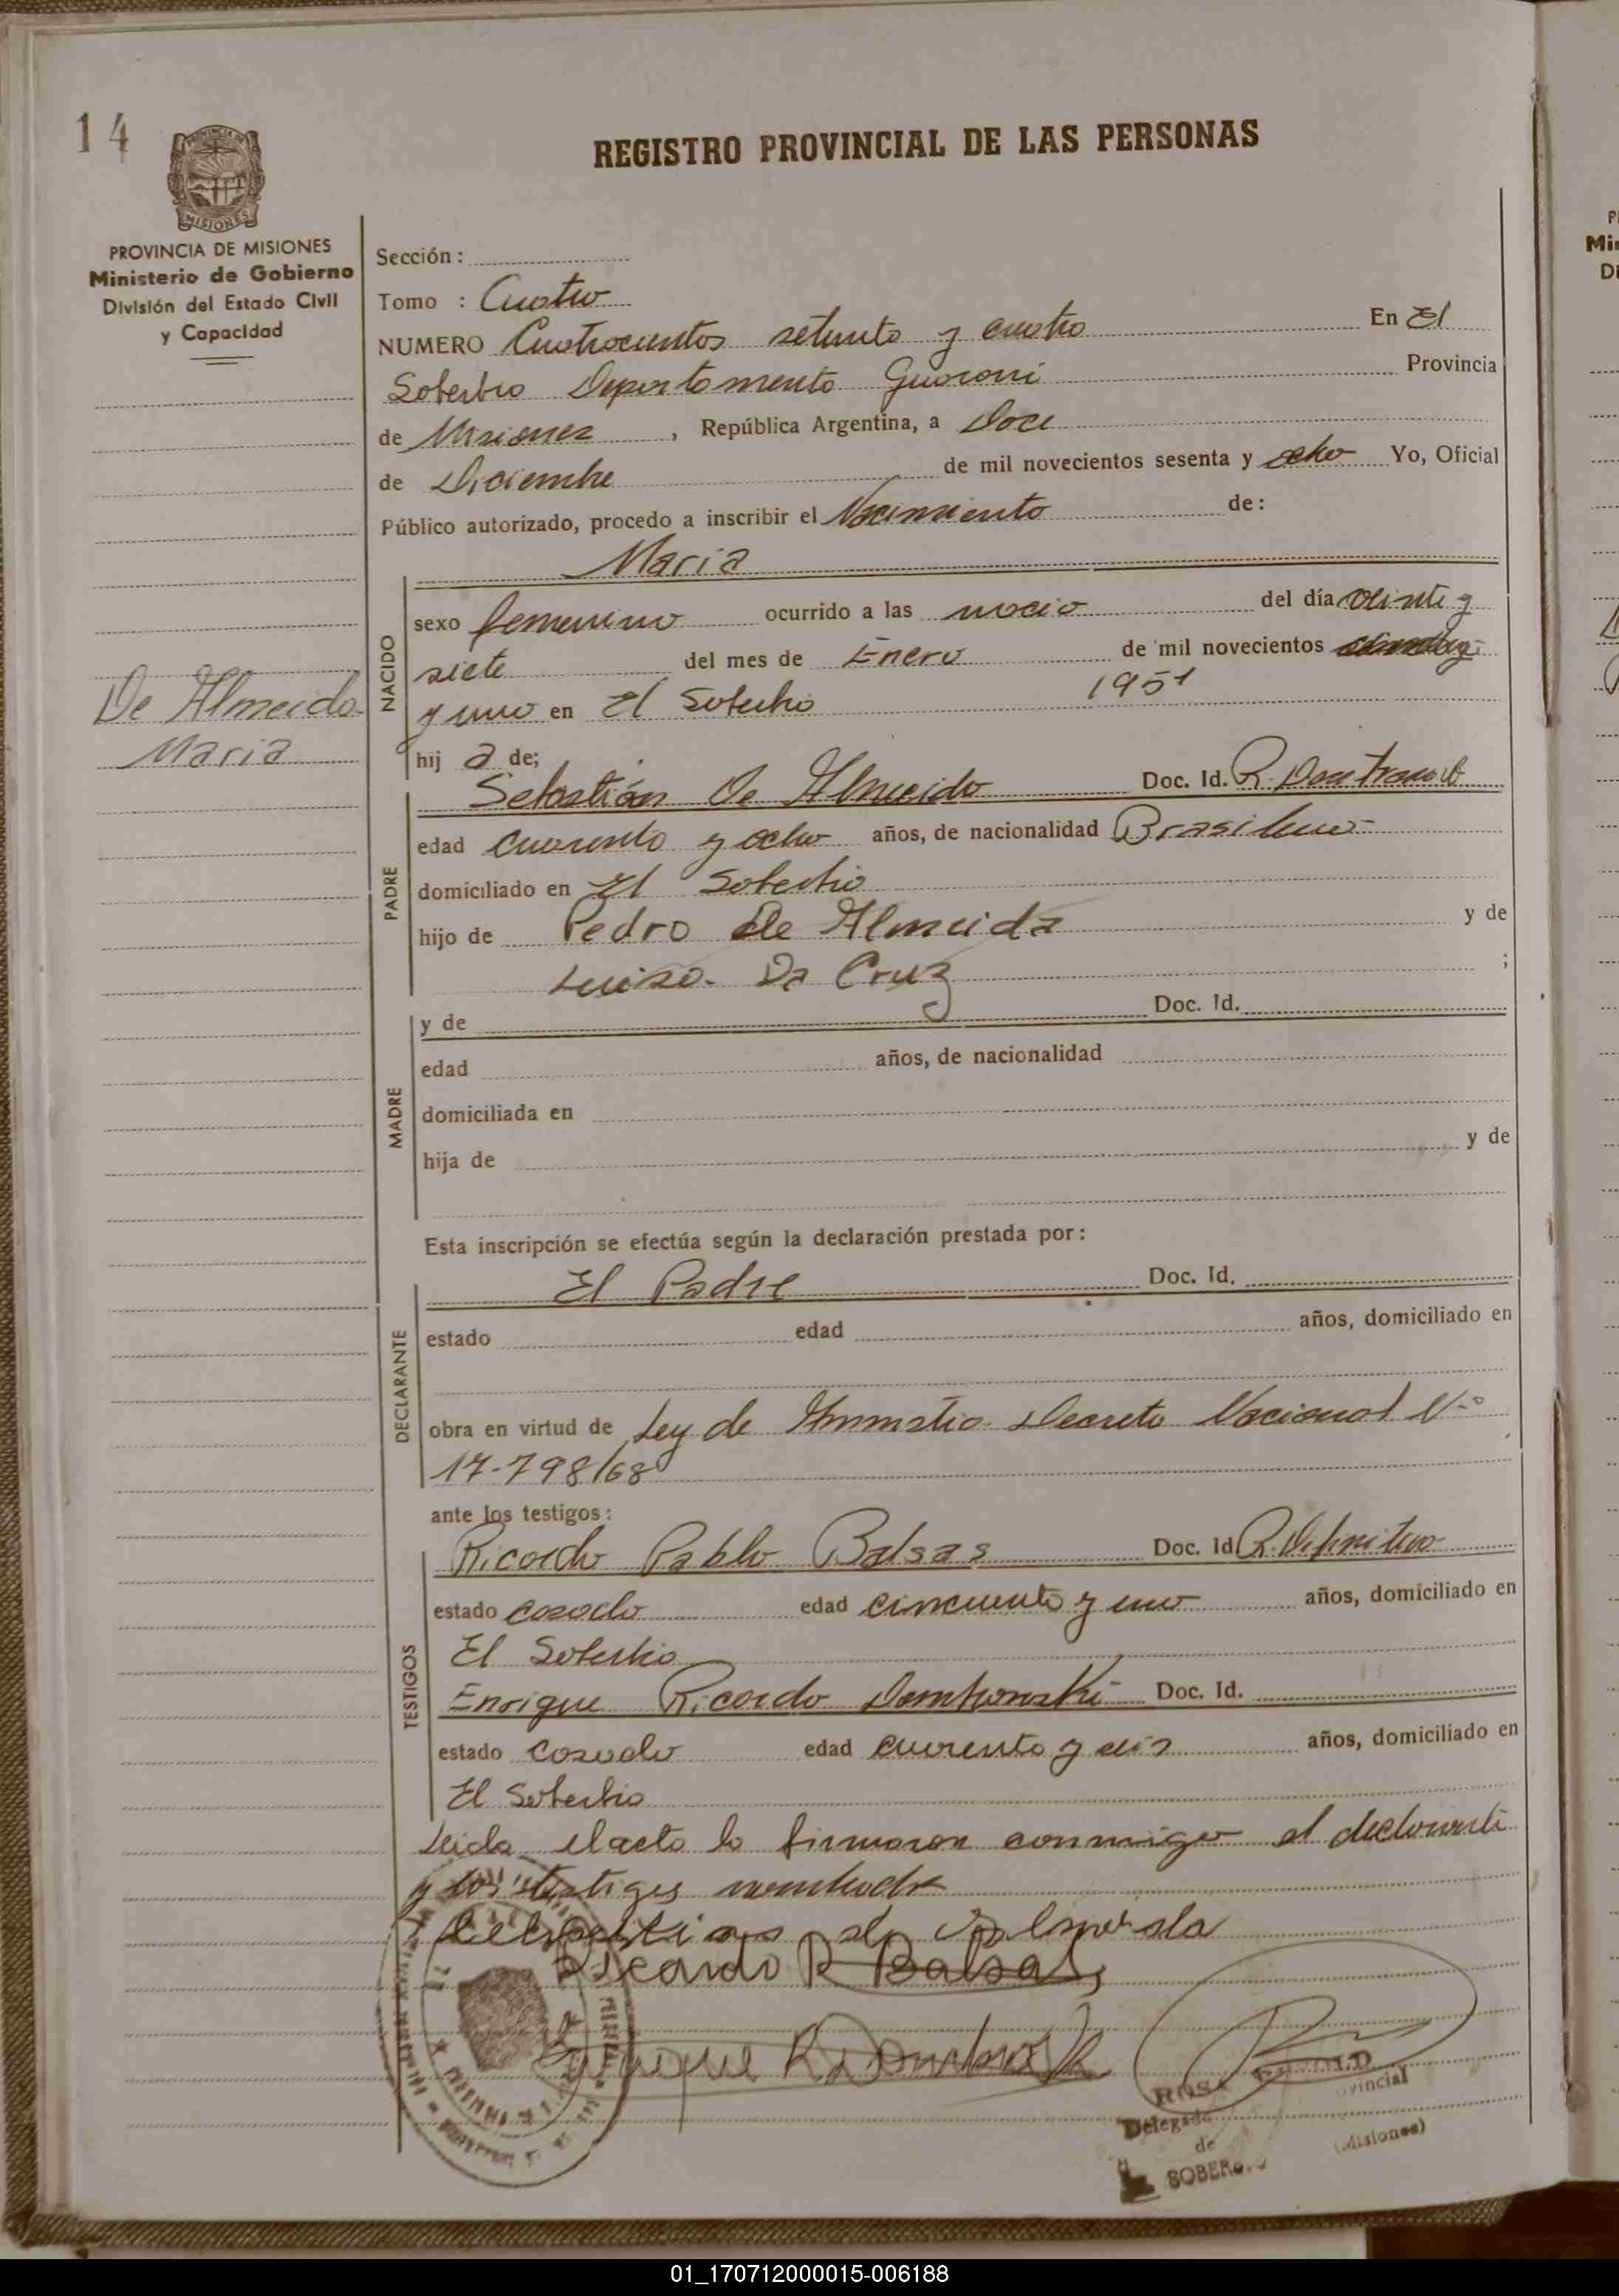 14
MISIONES
REGISTRO PROVINCIAL DE LAS PERSONAS
PROVINCIA DE MISIONES
Ministerio de Gobierno
División del Estado Civil
y Capacidad
Sección:
Tomo : Cuatro
NUMERO Cuatrocientos setenta y cuatro En El
Soberbio Departamento Guarani Provincia
de Misiones, República Argentina, a Doce
de Diciembre de mil novecientos sesenta y ocho Yo, Oficial
Público autorizado, procedo a inscribir el Nacimiento de:
Maria
NACIDO
sexo femenino ocurrido a las nacio del día veinte y
siete del mes de Enero de mil novecientos
1951
y uno en El Soberbio
De Almeida
Maria
hij a de;
PADRE
Sebastián De Almeida Doc. Id.
edad cuarenta y ocho años, de nacionalidad Brasileno
domiciliado en El Soberbio
hijo de Pedro de Almeida y de
Luisa Da Cruz ;
MADRE
y de Doc. Id.
edad años, de nacionalidad
domiciliada en
hija de y de
Esta inscripción se efectúa según la declaración prestada por:
DECLARANTE
El Padre Doc. Id.
estado edad años, domiciliado en
obra en virtud de Ley de Amnistia Decreto Nacional Nº
17-798/68
ante los testigos:
TESTIGOS
Ricardo Pablo Balsas Doc. Id R. Definitivo
estado casado edad cincuenta y uno años, domiciliado en
El Soberbio
Enrique Ricardo Dombronski Doc. Id.
estado casado edad cuarenta y años, domiciliado en
El Soberbio
Leida el acta la firmaron conmigo el declarante
y los testigos nombrados
Ricardo P. Balsas
ROSA
Delegada
de
(Misiones)
01_170712000015-006188